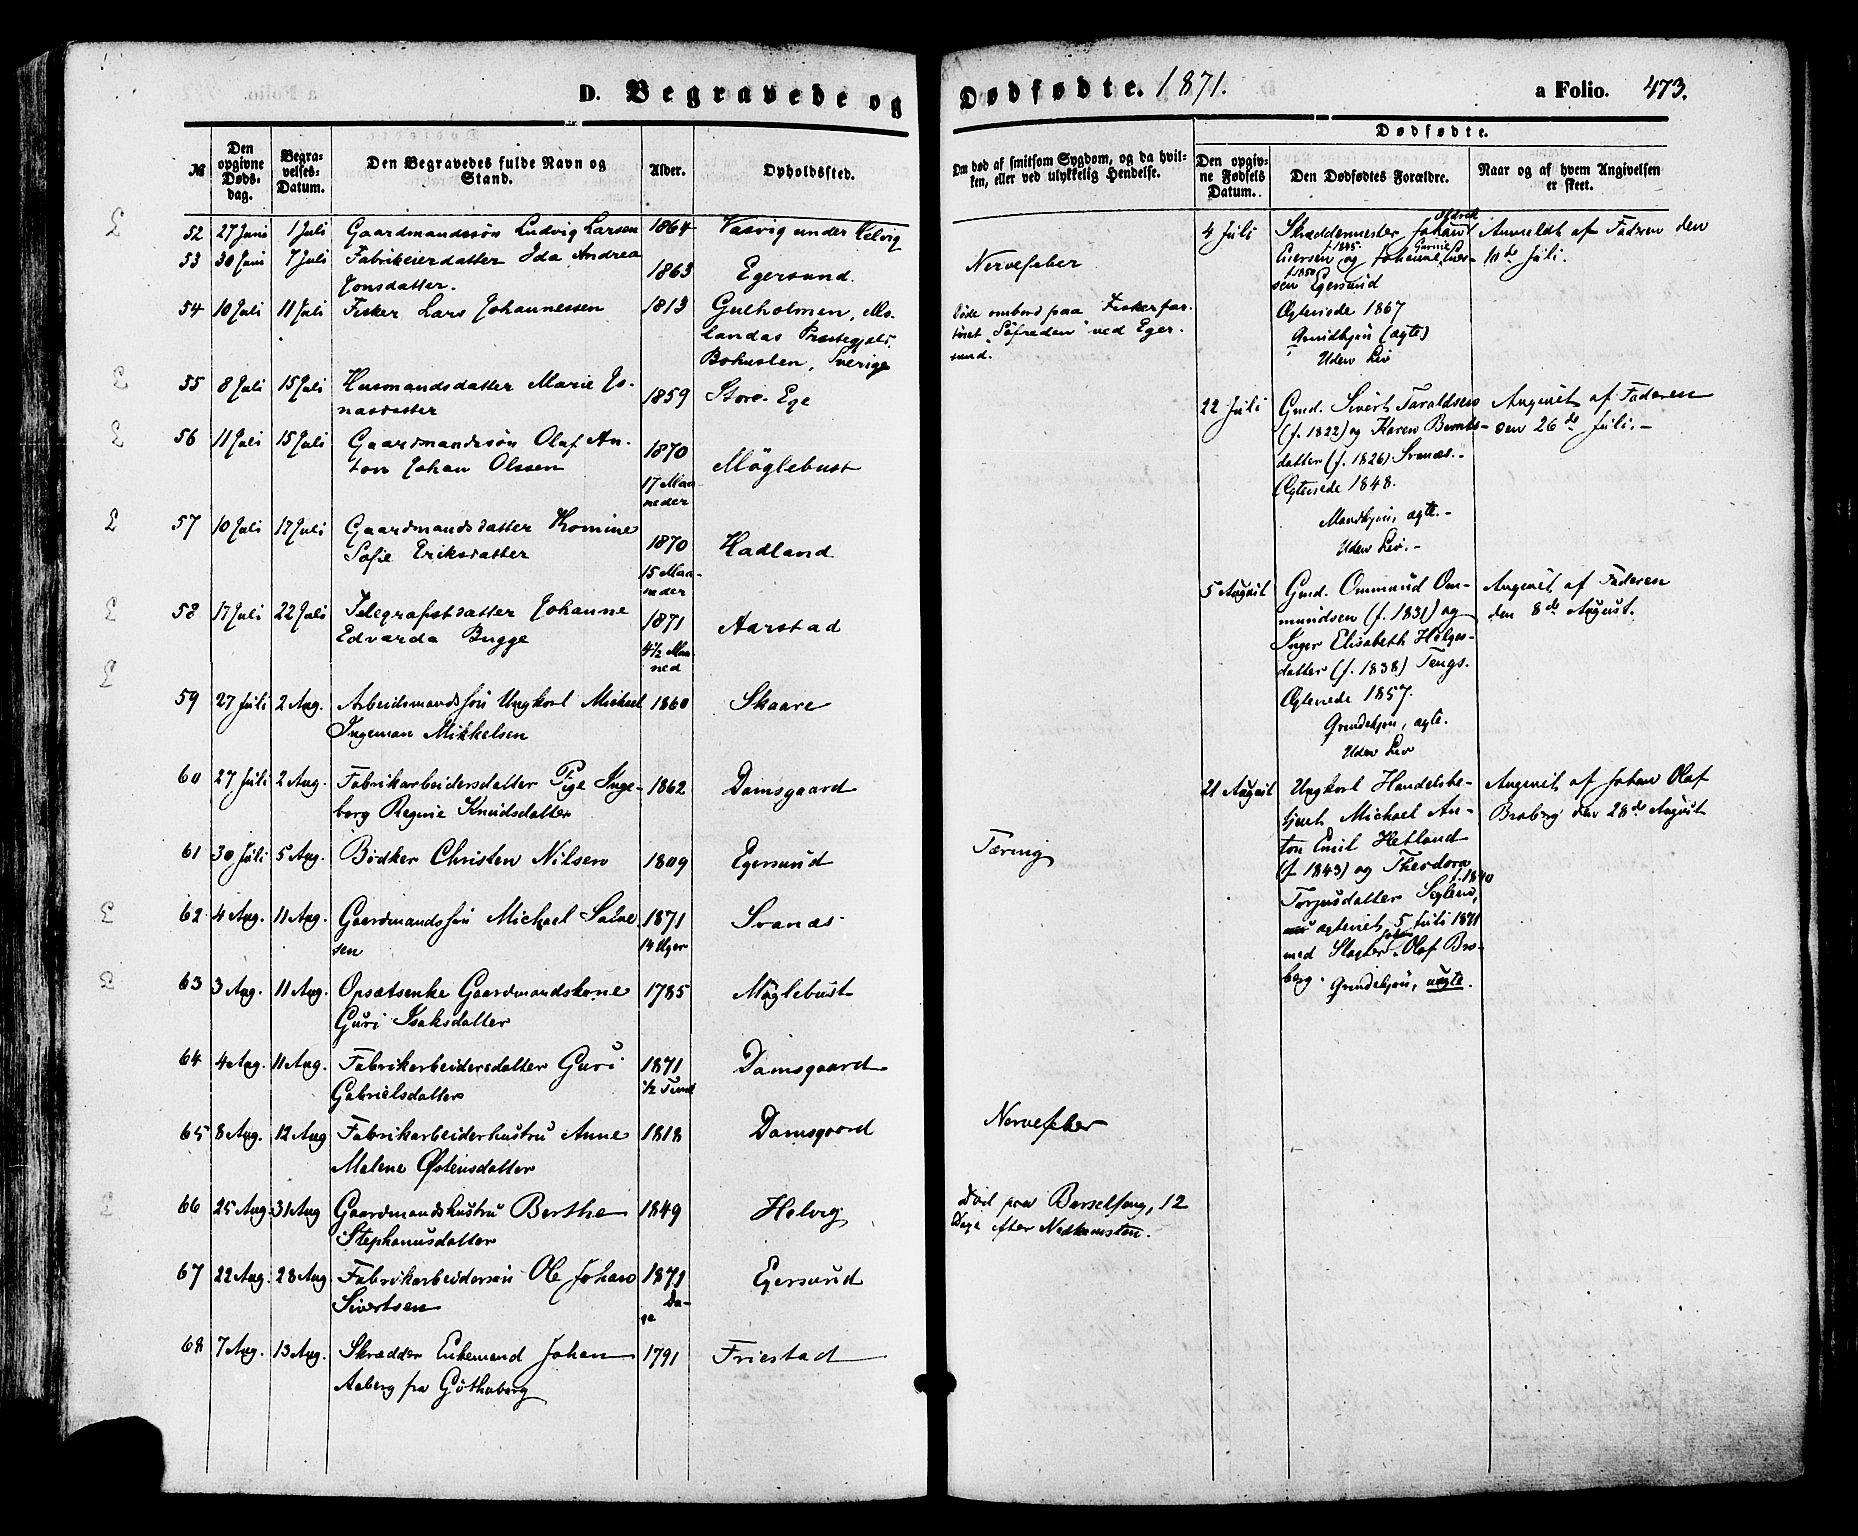 D. Begravede og
Dødfødte. 1871.
a Folio. 473.
№
Den opgivne Døds-dag.
Begra-velses-Datum.
Den Begravedes fulde Navn og Stand.
Alder.
Opholdssted.
Om død af smitsom Sygdom, og da hvil-
ken, eller ved ulykkelig Hendelse.
Dødfødte.
Den opgiv-ne Fødsels Datum.
Den Dødfødtes Forældre.
Naar og af hvem Angivelsen er skeet.
52 27 Juni 1 Juli Gaardmandssøn Ludvig Larsen 1864 Vasvig under Helvig
53 30 Juni 7 Juli Fabrikeierdatter Ida Andrea
Jonsdatter. 1863 Egersund. Nervefeber
54 10 Juli 11 Juli Fisker Lars Johannessen 1813 Gulholmen, Mo-
landas Præstegjeld.
Bohuslen, Sverige
Døde ombord paa Fiskerfar-
tøiet "Søfreden" ved Eger-
sund.
55 8 Juli 15 Juli Husmandsdatter Marie Jo-
nasdatter 1859 Store-Ege
56 11 Juli 15 Juli Gaardmandssøn Olaf An-
ton Johan Olssen 1870
17 Maa-
neder Møglebust
57 10 Juli 17 Juli Gaardmandsdatter Komine
Sofie Eriksdatter 1870
15 Maa-
neder Hadland
58 17 Juli 22 Juli Telegrafistdatter Johanne
Edvarda Bugge 1871
4½ Maa-
ned Aarstad
59 27 Juli 2 Aug. Arbeidsmandssøn Ungkarl Michael
Ingeman Mikkelsen 1860 Skaare
60 27 Juli 2 Aug. Fabrikarbeidersdatter Pige Inge-
borg Regine Knudsdatter 1862 Damsgaard
61 30 Juli 5 Aug. Bødker Christen Nilsen 1809 Egersund Tæring
62 4 Aug. 11 Aug. Gaardmandssøn Michael Salve-
sen 1871
14 Uger Svanæs
63 3 Aug. 11 Aug. Opsætsenke Gaardmandskone
Guri Isaksdatter 1785 Møglebust
64 4 Aug. 11 Aug. Fabrikarbeidersdatter Guri
Gabrielsdatter 1871
½ Time Damsgaard
65 8 Aug. 12 Aug Fabrikarbeiderhustru Anne
Malene Østensdatter 1818 Damsgaard Nervefeber
66 25 Aug. 31 Aug Gaardmandshustru Berthe
Stephanusdatter 1849 Helvig
Død paa Barselseng, 12
Dage efter Nedkomsten.
67 22 Aug. 28 Aug Fabrikarbeidersøn Ole Johan
Sivertsen 1871
Da-
ge Egersund
68 7 Aug. 13 Aug. Skrædder Enkemand Johan
Aaberg fra Gøthaborg 1791 Friestad
4 Juli Skræddermester Johan
f. 1845
og Johanne
f. 1850
sen Egersund
Ægteviede 1867
Qvindekjøn (ægte)
Uden Liv
Anmeldt af Faderen den
10de Juli.
22 Juli Gmd. Sivert Taraldsen
(f. 1822) og Karen Bernts-
datter (f. 1826) Svanæs.-
Ægteviede 1848.
Mandkjøn, ægte.-
Uden Liv.-
Angivet af Faderen
den 26de Juli.-
5 August Gmd. Ommund Om-
mundsen (f. 1831) og
Inger Elisabeth Helges-
datter (f. 1838) Tengs.
Ægteviede 1857.
Qvindekjøn, ægte.
Uden Liv
Angivet af Faderen
den 8de August.
21 August Ungkarl Handelsbe-
tjent Michael An-
ton Emil Hetland
(f. 1843) og Theodora
f. 1840
Torjusdatter Seglem,
ægteviet 5 Juli 1871
med Slagter Johan Olaf Bro-
berg. Qvindekjøn, uægte.
Angivet af Johan Olaf
Broberg den 28de August